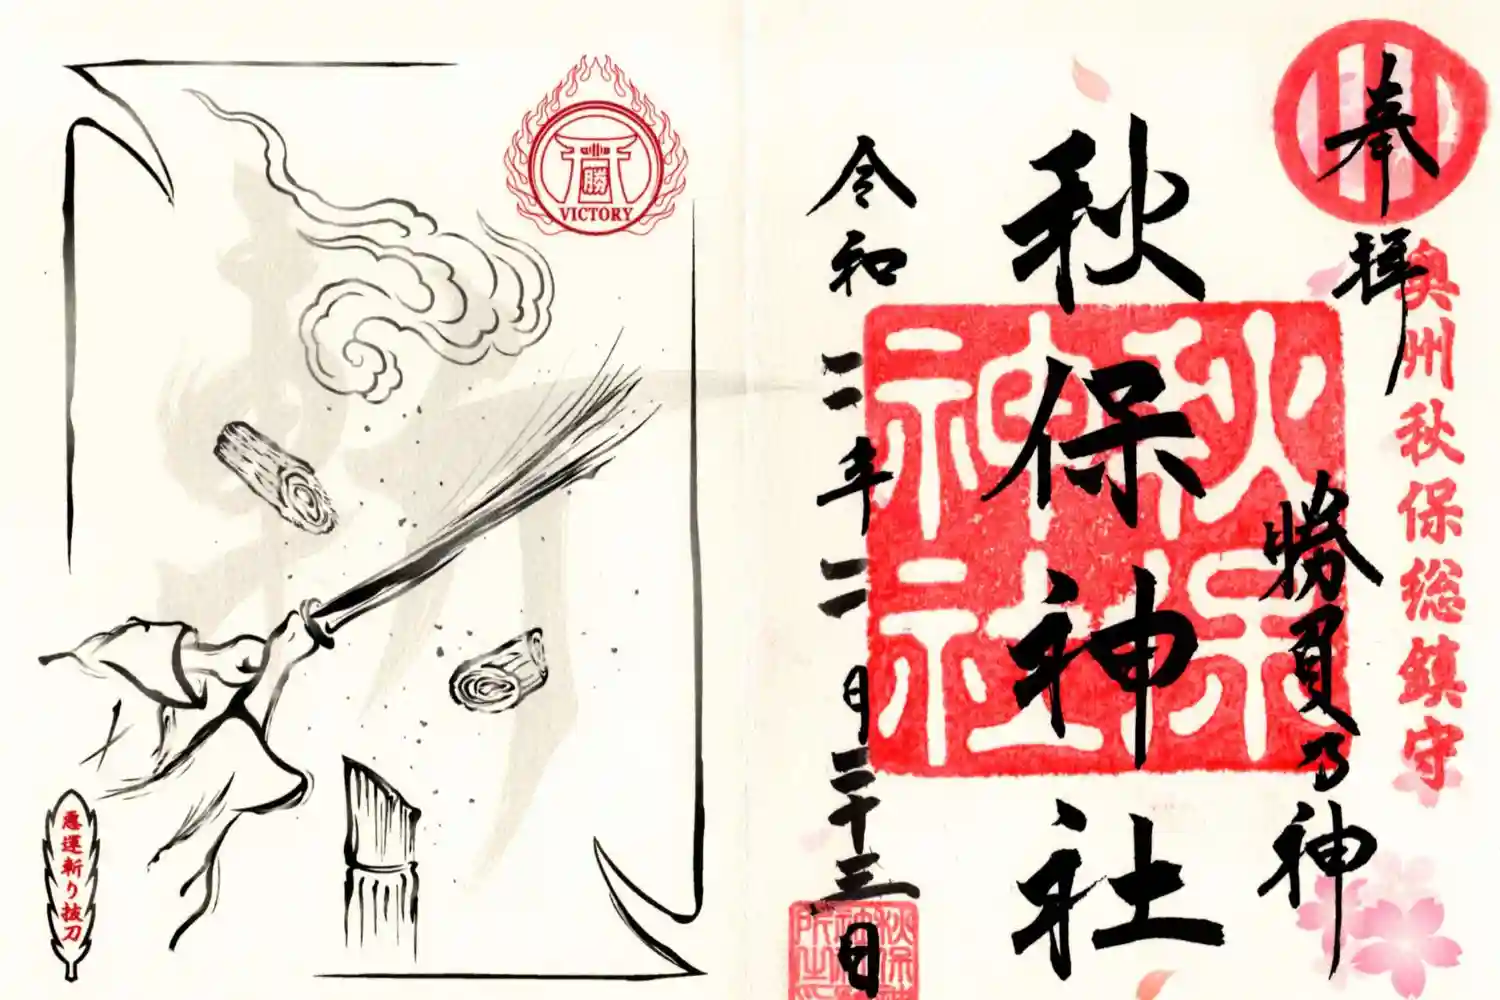 奥州秋保総鎮守
奉拝
勝負乃神
秋保神社
秋保神社
令和二年二月二十三日
勝
VICTORY
悪運斬り抜刀